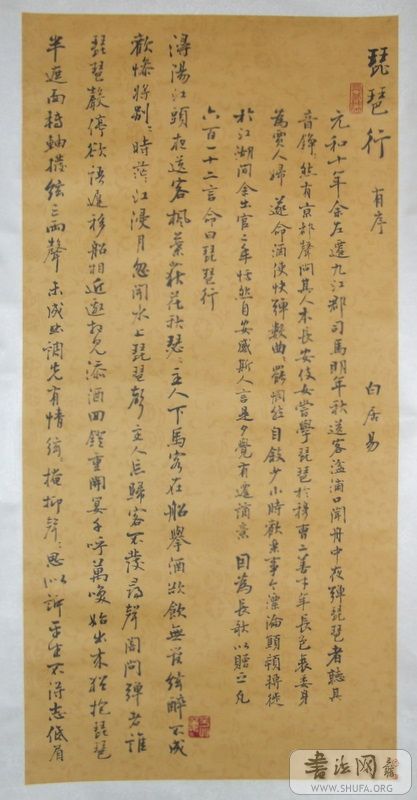 琵琶行 有序
白居易
元和十年余左遷九江郡司馬明年秋送客湓浦口聞舟中夜彈琵琶者聽其
音錚々然有京都聲問其人本長安倡女嘗學琵琶於穆曹二善才年長色衰委身
為賈人婦遂命酒使快彈數曲罷憫然自敘少小時歡樂事今漂淪顦顇轉徙
於江湖間余出官二年恬然自安感斯人言是夕覺有遷謫意因為長歌以贈之凡
六百一十二言命曰琵琶行
潯陽江頭夜送客楓葉荻花秋瑟々主人下馬客在船舉酒欲飲無管絃醉不成
歡慘將別々時茫々江浸月忽聞水上琵琶聲主人忘歸客不發尋聲闇問彈者誰
琵琶聲停欲語遲移船相近邀相見添酒回鐙重開宴千呼萬喚始出來猶抱琵琶
半遮面轉軸撥絃三兩聲未成曲調先有情絃々掩抑聲々思似訴平生不得志低眉
書法网
WWW.SHUFA.ORG